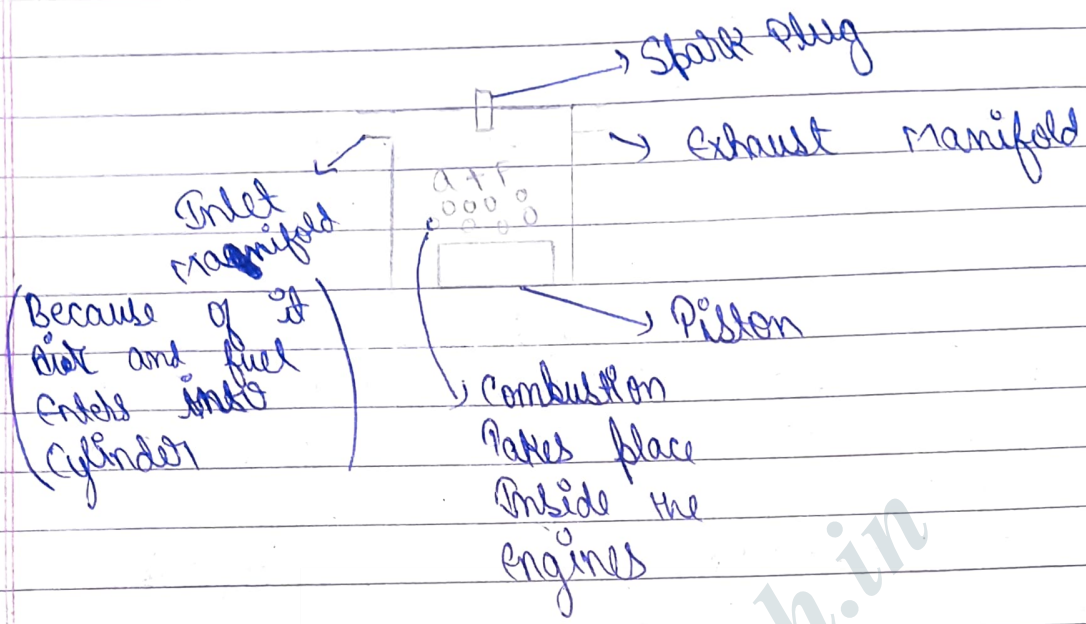 Spark Plug
Exhaust Manifold
a + f
Inlet
Manifold
(Because of it
air and fuel
enters into
cylinder)
Piston
Combustion
Takes place
Inside the
engines
h.in